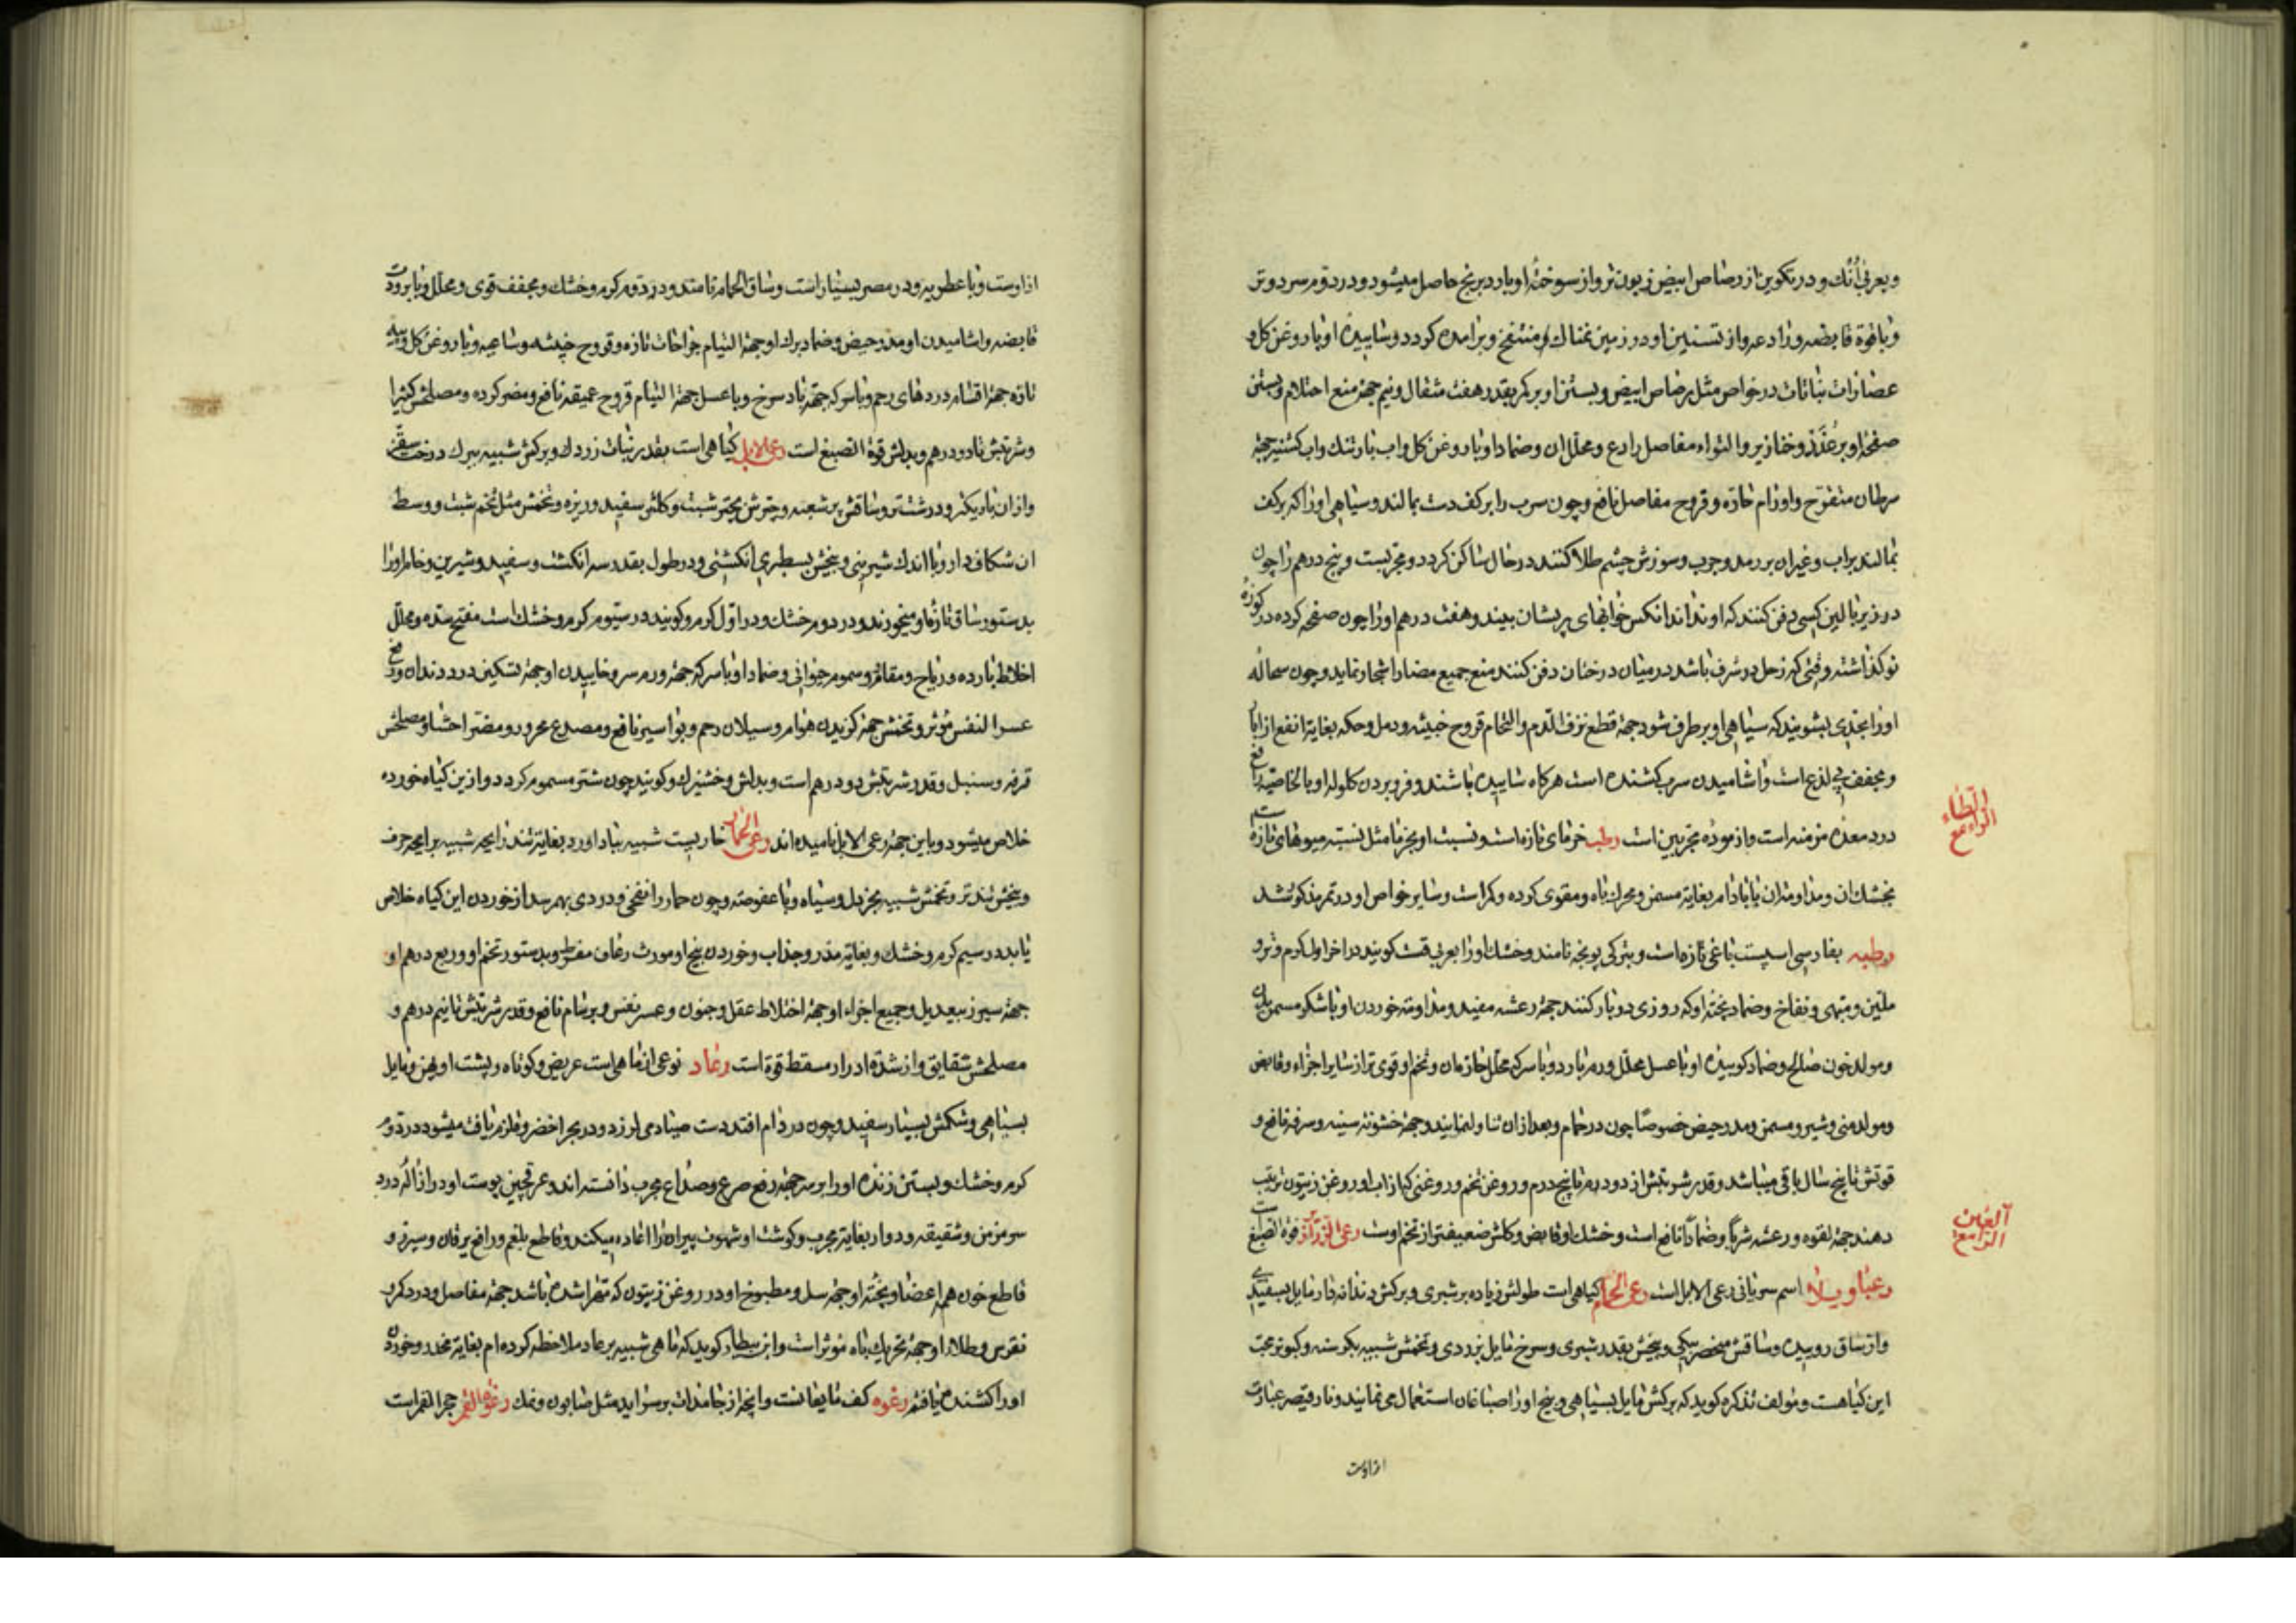 وبعربی آنک و در تکوین از رصاص ابیض زبون تر و از سوختهٔ او بارد برنج حاصل میشود و در دوم سرد و تر
و با قوة قابضه و رادعه و از تسنین او در زمین نمناک منتفخ و برآمده کردد و ساییدهٔ او با روغن کل و
عصارات نباتات در خواص مثل رصاص ابیض و بستن او بر کمر بقدر هفت مثقال و نیم جهة منع احتلام و بستن
صفحهٔ او بر غدد و خنازیر و التواء مفاصل رادع و محلل ان و ضماد او با روغن کل و اب بارتنک و اب کشنیز جهة
سرطان متقرح و اورام حاره و قروح مفاصل نافع و چون سرب را بر کف دست بمالند و سیاهی او را که بر کف
بمالند براب و غیر ان بر رمد و جرب و سوزش چشم طلا کنند در حال ساکن کردد و مجربست و پنج درهم را چون
در زیر بالین کسی دفن کنند که او نداند انکس خوابهای پریشان بیند و هفت درهم او را چون صفحه کرده در کوزهٔ
نو کذاشته وقتی که زحل در شرف باشد در میان درختان دفن کنند منع جمیع مضار اشجار نماید و چون سحالهٔ
او را بجدی بشویند که سیاهی او برطرف شود جهة قطع نزف الدم و التحام قروح خبیثه و دمل و حکه بغایة انفع از
و مجفف بی لذع است و اشامیدن سرب کشنده است هرکاه ساییده باشند و فرو بردن کلوله او بالخاصیه رافع
درد معدهٔ مزمنه است و ازمودهٔ مجربین است رطب خرمای تازه است و نسبت او بخرما مثل نسبت میوهای تازه است
بخشک ان و مداومت ان با بادام بغایة مسمن و محرک باه و مقوی کرده و کمر است و سایر خواص او در تمر مذکور شد
رطبه بفارسی اسپست باغی تازه است و بترکی یونجه نامند و خشک او را بعربی قت کویند در اخر اول کرم و تر و
ملین و مبهی و نفاخ و ضماد پختهٔ او که روزی دو بار کنند جهة رعشه مفید و مداومة خوردن او با شکر مسمن بدن
و مولد خون صالح و ضماد کوبیدهٔ او با عسل محلل ورم بارد و با سرکه محلل حار ان و تخم او قوی تر از سایر اجزاء و قابض
و مولد منی و شیر و مسمن و مدر حیض خصوصًا چون در حمام و بعد از ان تناول نمایند و جهة خشونة سینه و سرفه نافع و
قوتش تا پنج سال باقی میباشد و قدر شربتش از دو درم تا پنج درم و روغن تخم و روغنی که از اب او و روغن زیتون ترتیب
دهند جهة لقوه و رعشه شربًا و ضمادًا نافع است و خشک او قابض و کاش ضعیفتر از تخم اوست رعی الزرازیر فوة الصبغ است
رعیا ویلا اسم سریانی رعی الابل است رعی الحمام کیاهی است طولش زیاده بر شبری و برکش دندانه دار مایل بسفیدی
و از ساق روییده و ساقش منحصر بیکی و بیخش بقدر شبری و سرخ مایل بزردی و تخمش شبیه بکرسنه و کبوتر محب
این کیاهست و مؤلف تذکره کوید که برکش مایل بسیاهی و بیخ او را صباغان استعمال می نمایند و نارقیصر عبارت
از اوست
الطاء
الراء مع
العین
الراء مع
از اوست و با عطریه و در مصر بسیار است و ساق الحمام نامند و در دوم کرم و خشک و مجفف قوی و محلل و با برودت
قابضه و اشامیدن او مدر حیض و ضماد برک او جهة التیام جراحات تازه و قروح خبیثه و ساعیه و با روغن کل و پیه
تازه جهة اقسام دردهای رحم و با سرکه جهة باد سرخ و با عسل جهة التیام قروح عمیقه نافع و مضر کرده و مصلحش کتیرا
و شربتش تا دو درهم و بدلش فوة الصبغ است رعی الابل کیاهی است بقدر نبات زردک و برکش شبیه ببرک درخت سقز
و از ان باریکتر و درشت تر و ساقش پر شعبه و چترش بچتر شبت و کلش سفید و ریزه و تخمش مثل تخم شبت و وسط
ان شکاف دار و با اندک شیرینی و بیخش بسطبری انکشتی و در طول بقدر سه انکشت و سفید و شیرین و خام او را
بدستور ساق تازهٔ او میخورند و در دوم خشک و در اول کرم و کویند در سیوم کرم و خشک است مفتح سده و محلل
اخلاط بارده و ریاح و مقاوم سموم حیوانی و ضماد او با سرکه جهة ورم سر و خاییدن او جهة تسکین درد دندان و رفع
عسر النفس مؤثر و تخمش جهة کزیدن هوام و سیلان رحم و بواسیر نافع و مصدع محرور و مضر احشا و مصلحش
قرفه و سنبل و قدر شربتش دو درهم است و بدلش وخشیزک و کویند چون شتر مسموم کردد و از این کیاه خورده
خلاص میشود و باین جهة رعی الابل نامیده اند رعی الحمار خاریست شبیه بباداورد بغایة تند رایحه شبیه برایحه حرف
و بیخش تندتر و تخمش شبیه بخردل و سیاه و با عفوصة و چون حمار را نفخی و دردی بهم رسد از خوردن این کیاه خلاص
یابد در سیم کرم و خشک و بغایة مدر و جذاب و خوردن بیخ او مورث رعاف مفرط و بدستور تخم او و ربع درهم او
جهة سپرز بیعدیل و جمیع اجزاء او جهة اختلاط عقل و جنون و عسر نفس و برسام نافع و قدر شربتش تا نیم درهم و
مصلحش شقایق و از شدة ادرار مسقط قوة است رعاد نوعی از ماهی است عریض و کوتاه و پشت او پهن و مایل
بسیاهی و شکمش بسیار سفید و چون در دام افتد دست صیاد می لرزد و در بحر اخضر و قلزم یافت میشود در دوم
کرم و خشک و بستن زندهٔ او را بر سر جهة رفع صرع و صداع مجرب دانسته اند و عرقچین پوست او در ازالهٔ درد
سر مزمن و شقیقه و دوار بغایة مجرب و کوشت او شهوت پیران را اعاده میکند و قاطع بلغم و رافع یرقان و سپرز و
قاطع خون همه اعضا و پختهٔ او جهة سل و مطبوخ او در روغن زیتون که مهرا شده باشد جهة مفاصل و درد کمر و
نقرس و طلاء او جهة تحریک باه مؤثر است و ابن بیطار کوید که ماهی شبیه برعاد ملاحظه کرده ام بغایة مخدر و خوردن
او را کشنده یافتم رغوه کف مایعاتست و انچه از جامدات بر سر اید مثل صابون و نمک رغوة القمر حجر القمر است